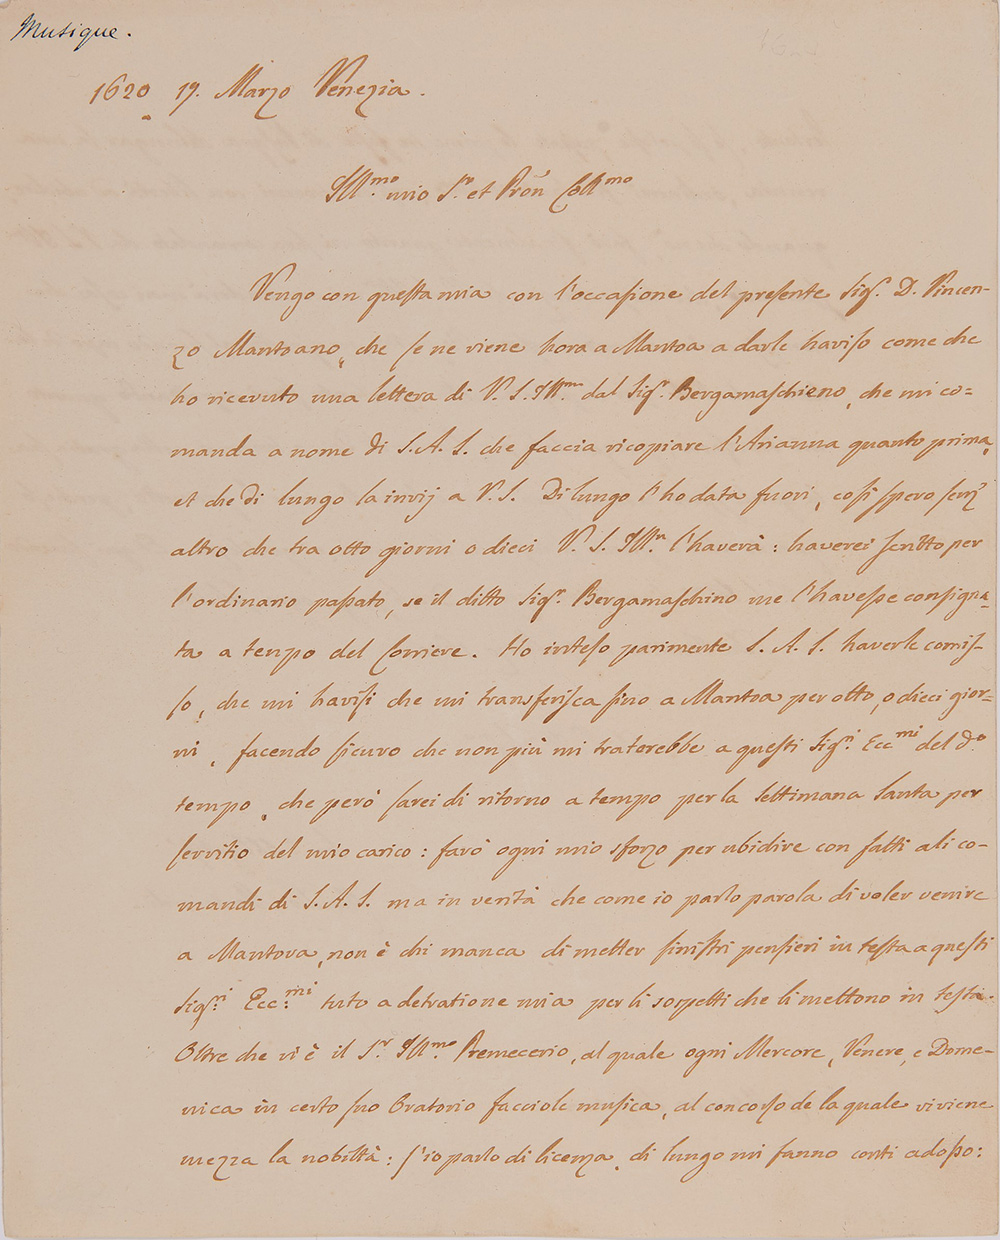 Musique.
1620 17. Marzo Venezia.
Ill.mo mio S.r et Pron Coll.mo
Vengo con questa mia con l'occasione del presente Sig.r D. Vincen-
zo Mantoano, che se ne viene hora a Mantoa a darle haviso come che
ho ricevuto una lettera di V. S. Ill.ma dal Sig.r Bergamaschieno, che mi co-
manda a nome di S. A. S. che faccia ricopiare l'Arianna quanto prima,
et che di lungo la invij a V. S. Di lungo l'ho data fuori, così spero senz'
altro che tra otto giorni o dieci V. S. Ill.ma l'haverà: haverei scritto per
l'ordinario passato, se il ditto Sig.r Bergamaschino me l'havesse consigna-
ta a tempo del Corriere. Ho inteso parimente S. A. S. haverle comis-
so, che mi havisi che mi transferisca sino a Mantoa per otto, o dieci gior-
ni, facendo sicuro che non più mi traterebbe a questi Sig.ri Ecc.mi del d.o
tempo, che però sarei di ritorno a tempo per la Settimana Santa per
servitio del mio carico: farò ogni mio sforzo per ubidire con fatti a li co-
mandi di S. A. S. ma in verità che come io parlo parola di voler venire
a Mantova, non è chi manca di metter sinistri pensieri in testa a questi
Sig.ri Ecc.mi tuto a detratione mia per li sospetti che li mettono in testa.
Oltre che vi è il S.r Ill.mo Premecerio, al quale ogni Mercore, Venere, e Dome-
nica in certo suo Oratorio facciole musica, al concorso de la quale vi viene
mezza la nobiltà: s'io parlo di licenza, di lungo mi fanno conti adosso: